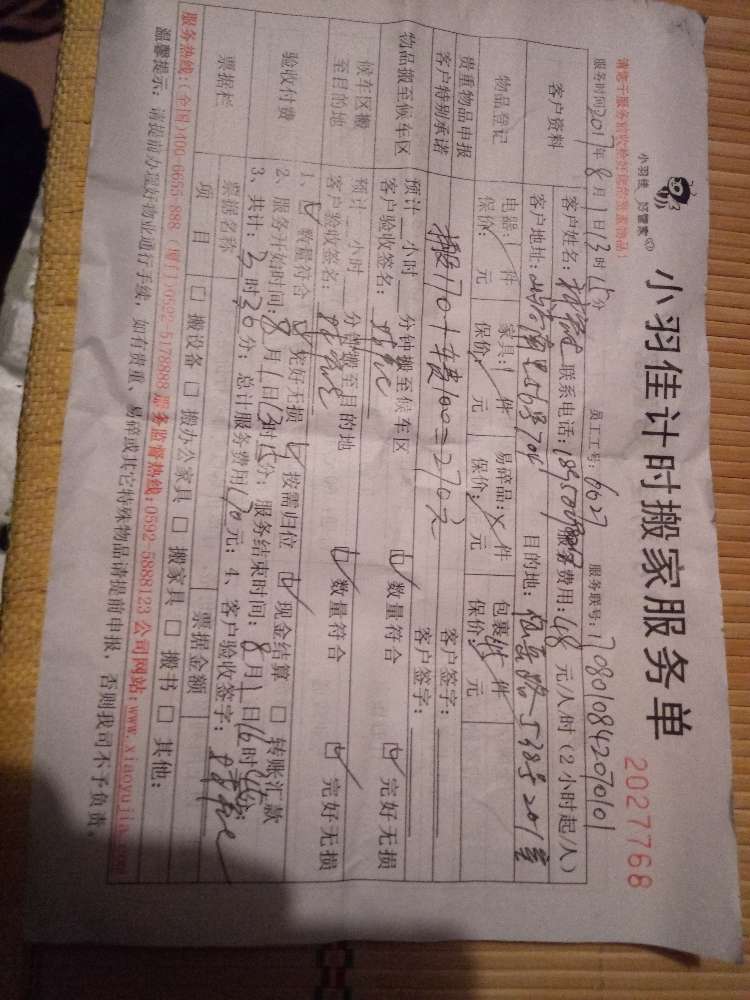 小羽佳 好管家
小羽佳计时搬家服务单
2027768
请您于服务前收捡好您的贵重物品!
服务时间2017年8月1日13时15分 员工工号:0627 服务联号:1708010842070101
客户资料 客户姓名: 联系电话: 服务费用:48元/人/时(2小时起/人)
客户地址: 目的地: 538号201室
物品登记 电器: 件 家具: 件 易碎品:×件 包裹 件
保价: 元 保价: 元 保价: 元 保价: 元
贵重物品申报 客户签字:
客户特别承诺 搬170+楼100=270元 客户签字:
物品搬至候车区 预计 小时 分钟搬至候车区 ☑ 数量符合 ☑ 完好无损
客户验收签名:
候车区搬至目的地 预计 小时 分钟搬至目的地 ☑ 数量符合 ☑ 完好无损
客户验收签名:
验收付费 1、☑ 数量符合 ☑ 完好无损 ☑ 按需归位 ☑ 现金结算 □ 转账汇款
2、服务开始时间:8月1日13时15分;服务结束时间:8月1日16时 分
3、共计:3时36分;总计服务费用170元;4、客户验收签字:
票据栏 票据名称 票据金额
项目 □ 搬设备 □ 搬办公家具 □ 搬家具 □ 搬书 □ 其他:
服务热线:(全国)400-6655-888 (厦门)0592-5178888 服务监督热线:0592-5888123 公司网站:www.xiaoyujia.com
温馨提示:请提前办理好物业通行手续,如有贵重、易碎或其它特殊物品请提前申报,否则我司不予负责。